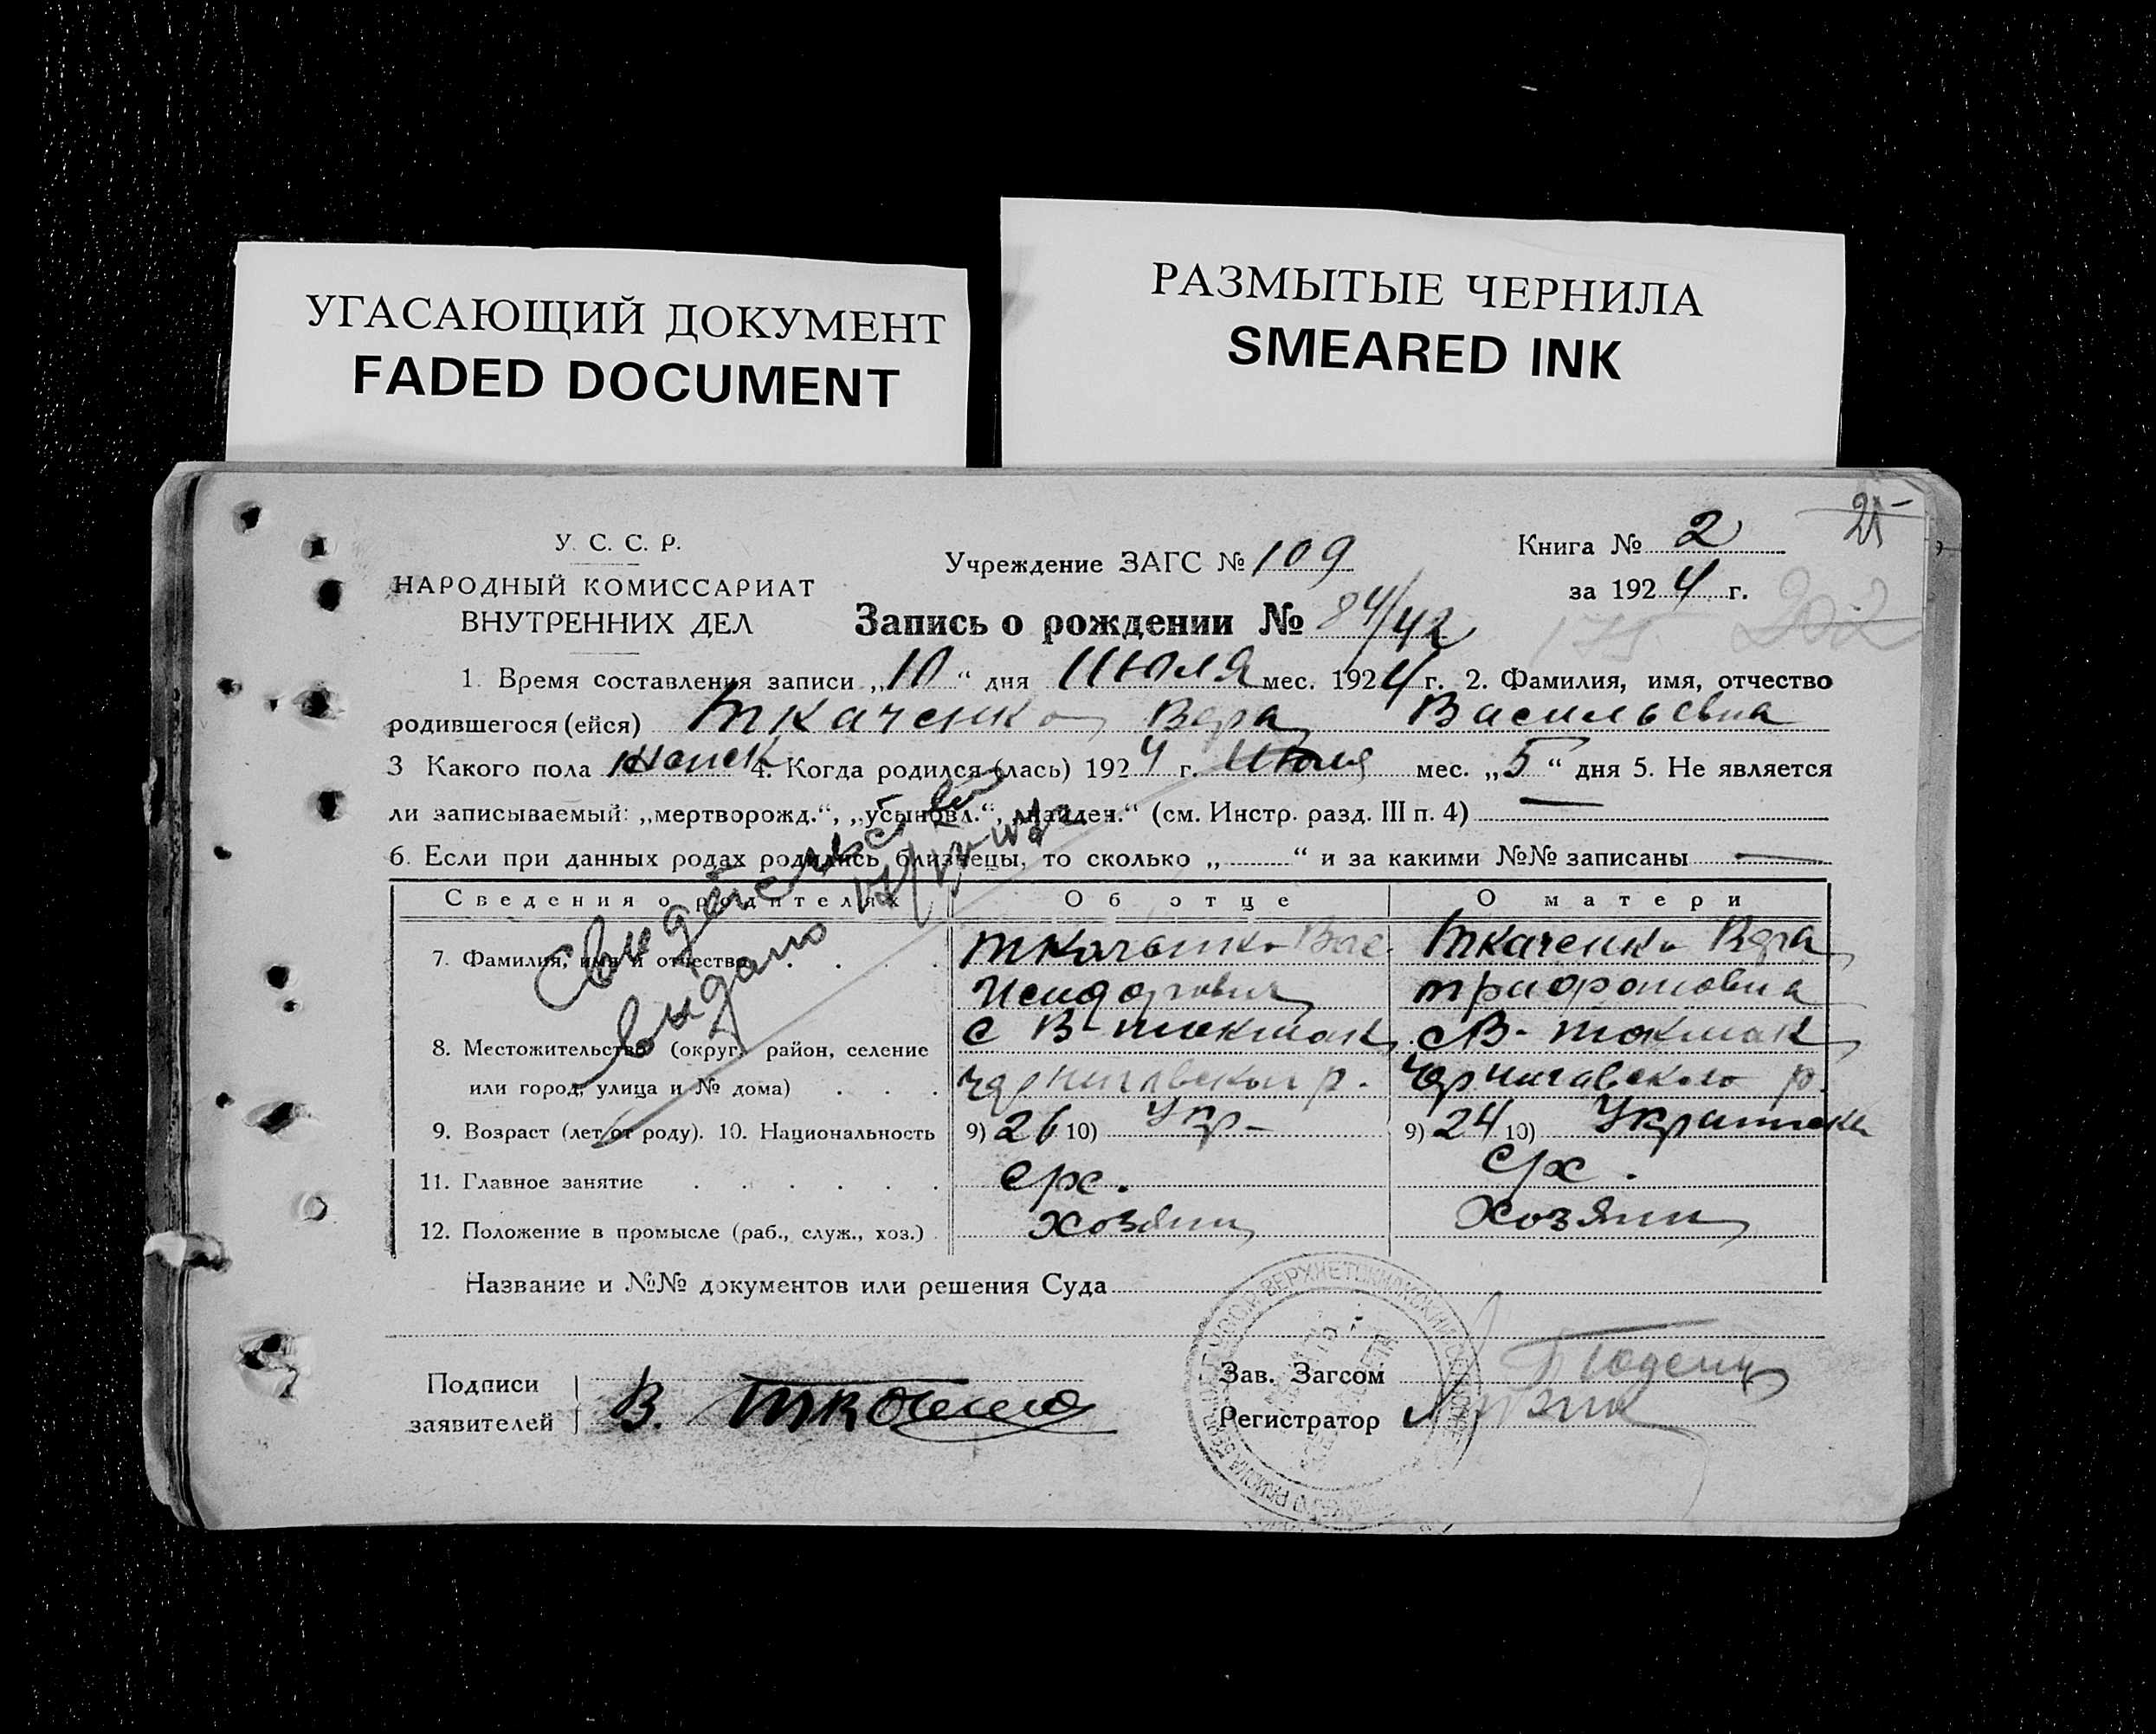 УГАСАЮЩИЙ ДОКУМЕНТ
FADED DOCUMENT
РАЗМЫТЫЕ ЧЕРНИЛА
SMEARED INK
У. С. С. Р.
НАРОДНЫЙ КОМИССАРИАТ
ВНУТРЕННИХ ДЕЛ
Учреждение ЗАГС № 109
Книга № 2
за 1924 г.
21
202
175
Запись о рождении № 84/42
1. Время составления записи „10“ дня Июля мес. 1924 г. 2. Фамилия, имя, отчество
родившегося (ейся) Ткаченко Вера Васильевна
3 Какого пола женск 4. Когда родился (лась) 1924 г. Июля мес. „5“ дня 5. Не является
ли записываемый: „мертворожд.“, „усыновл.“, „найден.“ (см. Инстр. разд. III п. 4) —
6. Если при данных родах родились близнецы, то сколько „ “ и за какими №№ записаны —
Свидетельство
выдано
Сведения о родителях Об отце О матери
7. Фамилия, имя и отчество Ткаченко Вас. Ткаченко Вера
Исидорович Трифоновна
8. Местожительство (округ, район, селение с В-Токмак с В-Токмак
или город, улица и № дома) Черниговского р. Черниговского р.
9. Возраст (лет от роду). 10. Национальность 9) 26 10) Укр- 9) 24 10) Украинка
11. Главное занятие с/х. с/х.
12. Положение в промысле (раб., служ., хоз.) хозяин Хозяин
Название и №№ документов или решения Суда
Подписи
заявителей В. Ткаченко
Зав. Загсом
Регистратор